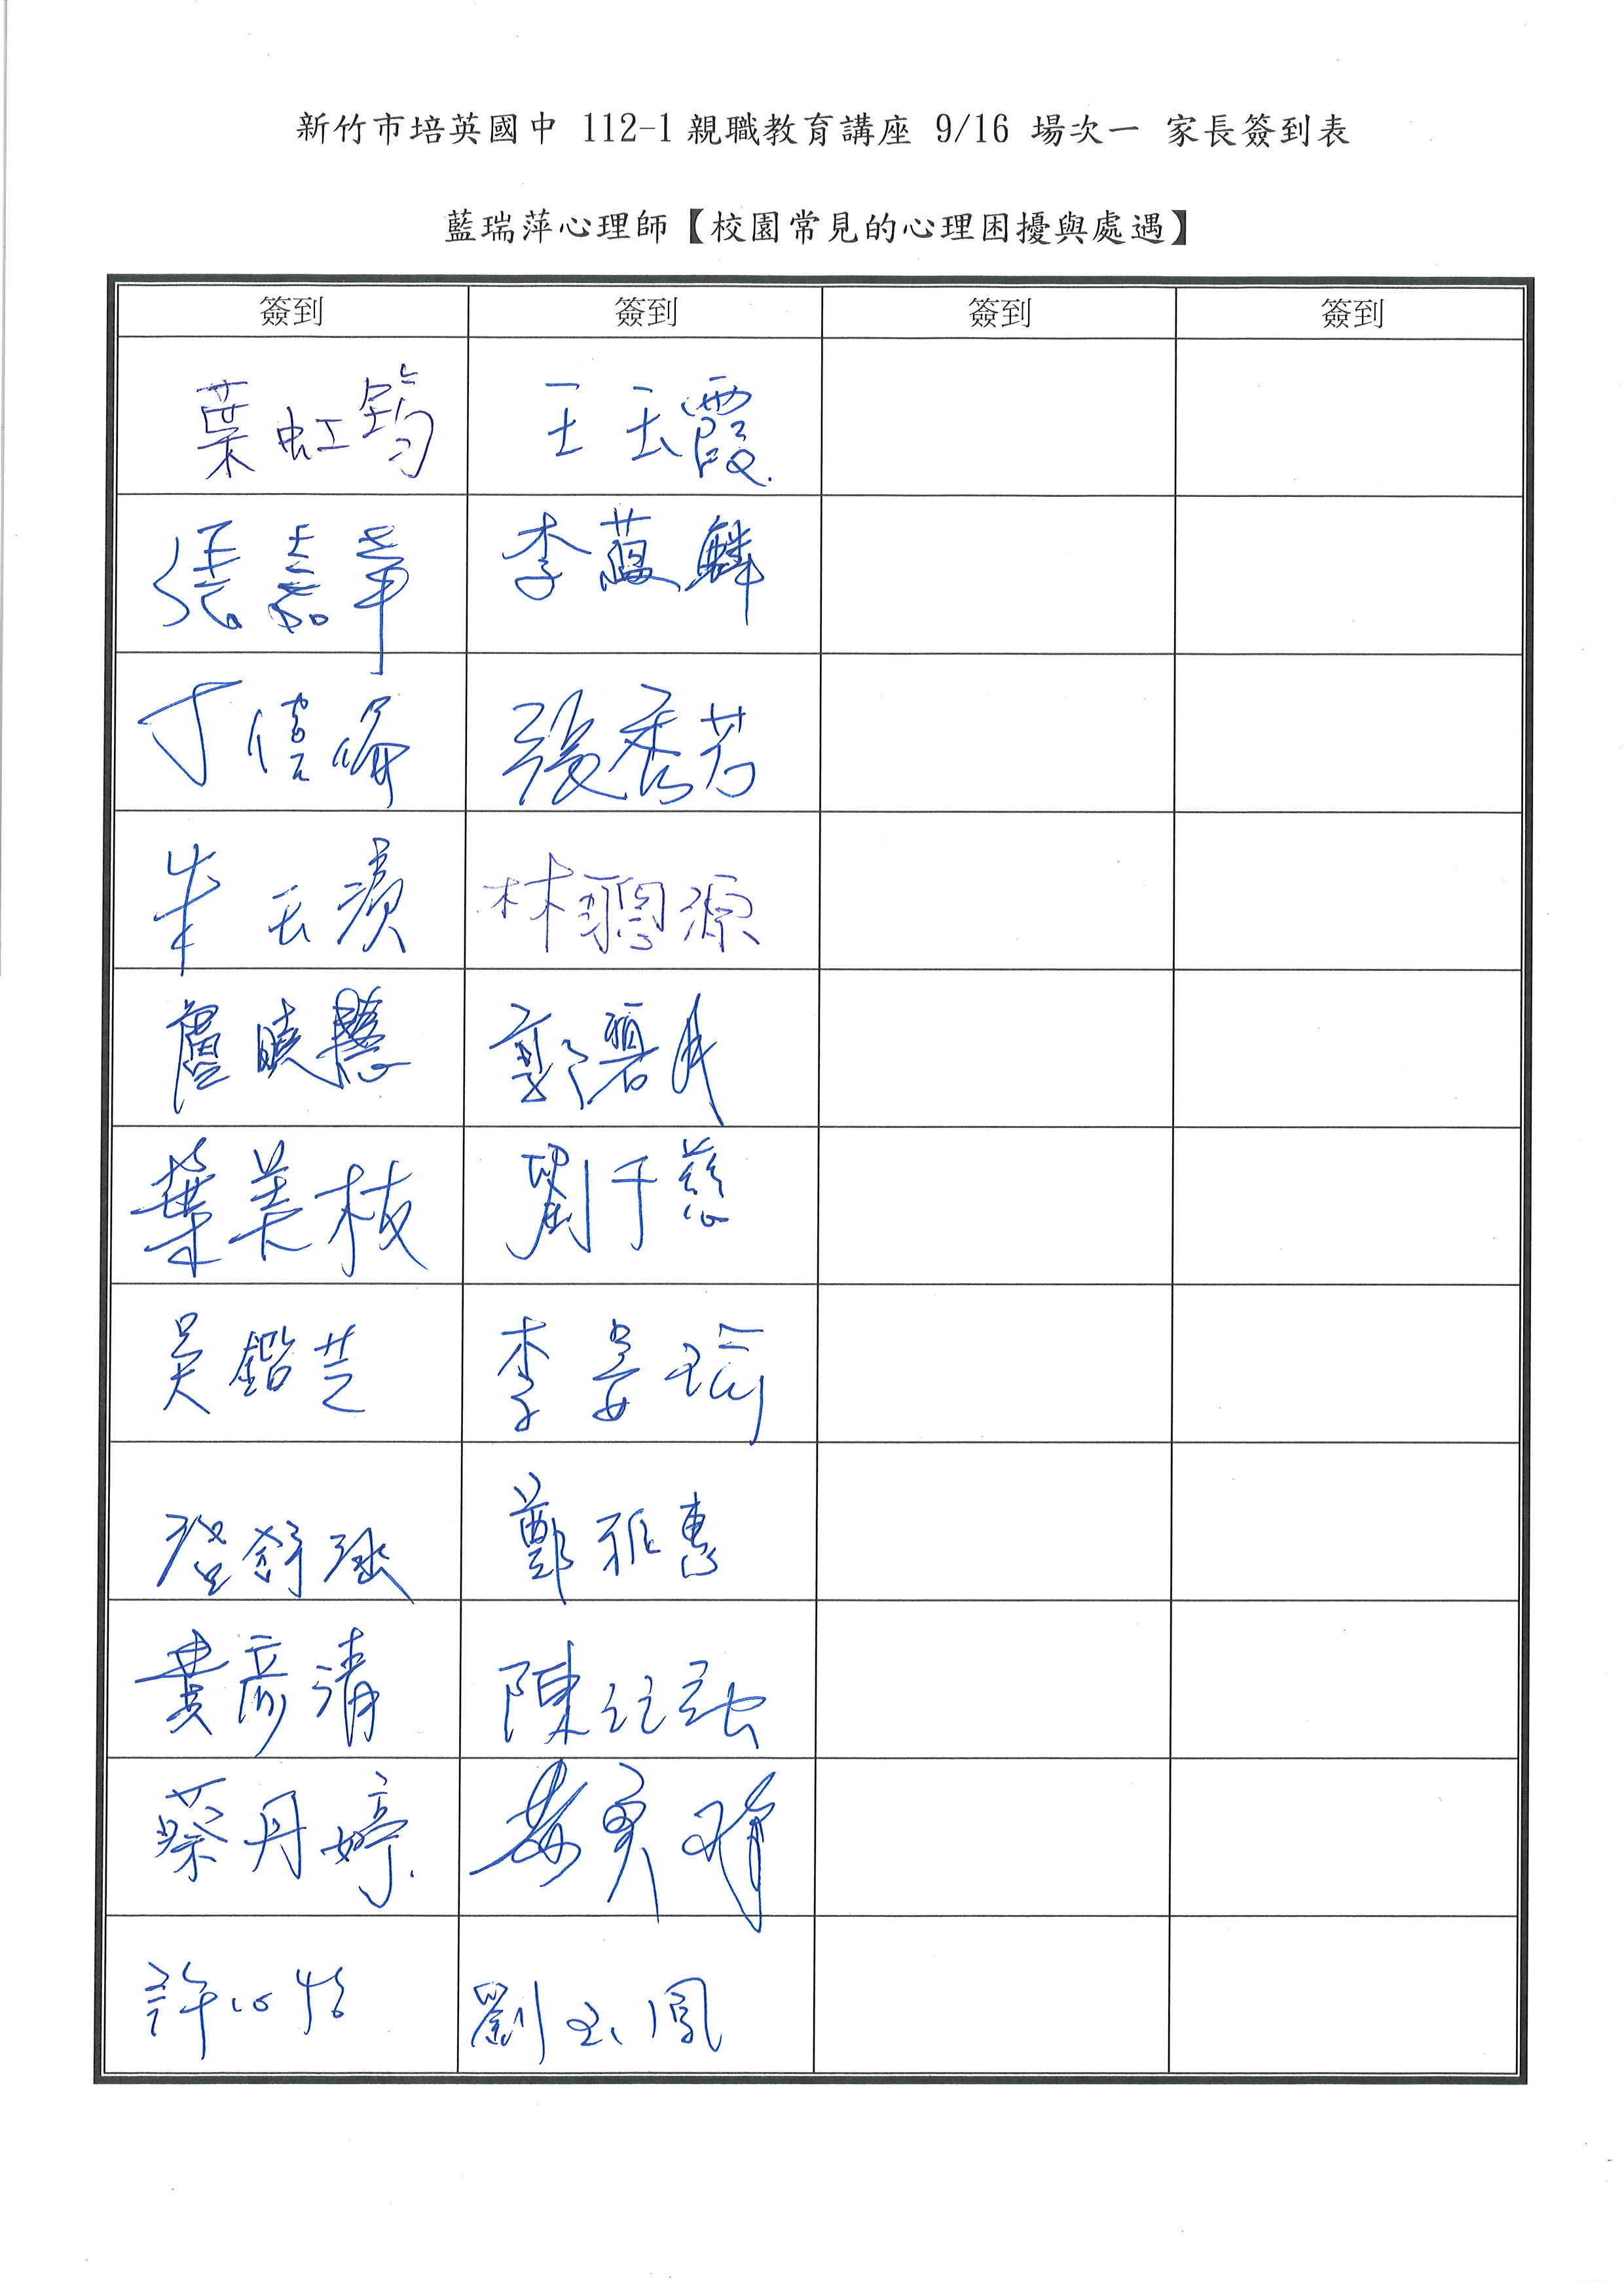 新竹市培英國中 112-1親職教育講座 9/16 場次一 家長簽到表
藍瑞萍心理師【校園常見的心理困擾與處遇】
簽到 簽到 簽到 簽到
葉虹筠 王玉霞
張嘉 李蘊麟
丁 張秀芳
朱玉 林聰源
盧曉慧 郭碧月
葉美枝 劉于慈
吳鍇芝 李姿瑜
舒 鄭雅惠
黃彥清 陳
蔡丹婷
許心怡 劉玉鳳